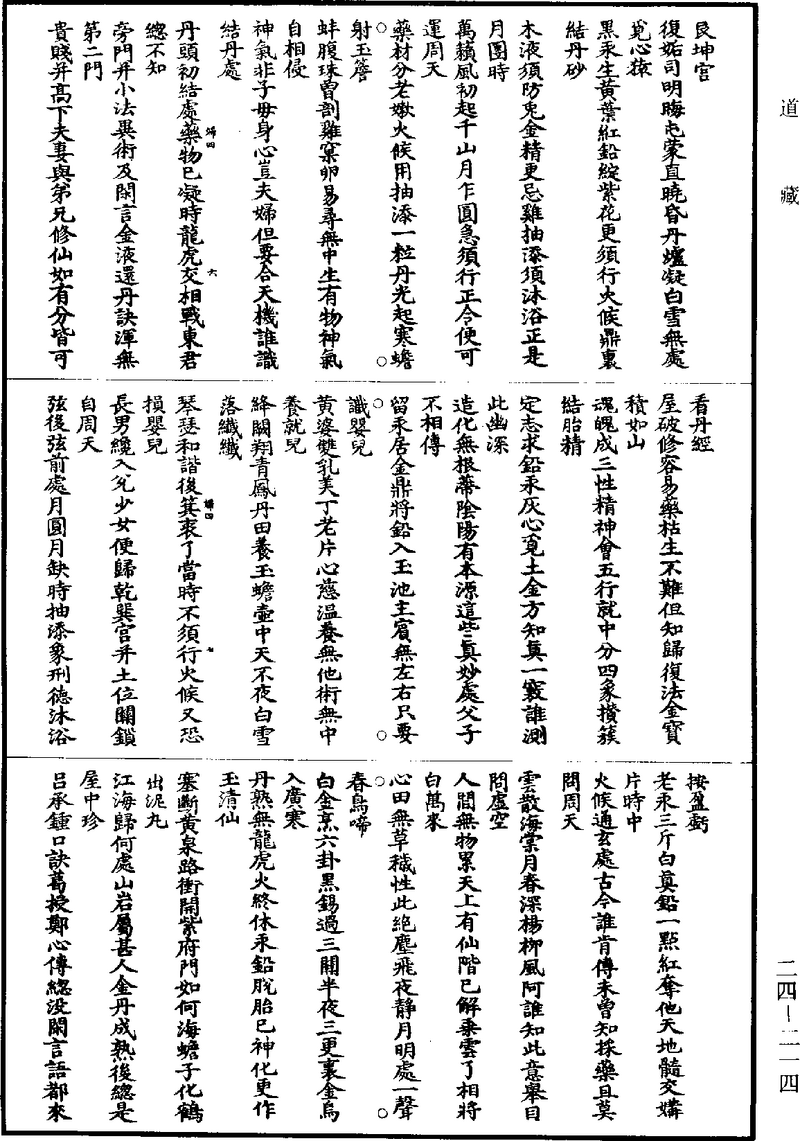 道藏
艮坤宮
復姤司明晦屯蒙直曉昏丹爐凝白雪無處
覓心猿
黑汞生黃葉紅鉛綻紫花更須行火候鼎裏
結丹砂
木液須防兎金精更忌雞抽添須沐浴正是
月圓時
萬籟風初起千山月乍圓急須行正令便可
運周天
藥材分老嫩火候用抽添一粒丹光起寒蟾
射玉簷
蚌腹珠曾剖雞窠卵易尋無中生有物神氣
自相侵
神氣非子母身心豈夫婦但要合天機誰識
結丹處
丹頭初結處藥物已凝時龍虎交相戰東君
總不知
旁門并小法異術及閑言金液還丹訣渾無
第二門
貴賤并高下夫妻與弟兄修仙如有分皆可
歸四
六
看丹經
屋破修容易藥枯生不難但知歸復法金寶
積如山
魂魄成三性精神會五行就中分四象攢簇
結胎精
定志求鉛汞灰心覓土金方知真一竅誰測
此幽深
造化無根蔕陰陽有本源這些真妙處父子
不相傳
留汞居金鼎將鉛入玉池主賓無左右只要
識嬰兒
黃婆雙乳美丁老片心慈溫養無他術無中
養就兒
絳闕翔青鳳丹田養玉蟾壺中天不夜白雪
落纖纖
琴瑟和諧後箕裘了當時不須行火候又恐
損嬰兒
長男纔入兊少女便歸乾巽宮并土位關鎖
自周天
弦後弦前處月圓月缺時抽添象刑德沐浴
歸四
七
按盈虧
老汞三斤白真鉛一點紅奪他天地髓交媾
片時中
火候通玄處古今誰肯傳未曾知採藥且莫
問周天
雲散海棠月春深楊柳風阿誰知此意舉目
問虛空
人間無物累天上有仙階已解乘雲了相將
白萬來
心田無草穢性此絕塵飛夜靜月明處一聲
春鳥啼
白金烹六卦黑錫過三關半夜三更裏金烏
入廣寒
丹熟無龍虎火終休汞鉛脫胎已神化更作
玉清仙
塞斷黃泉路衝開紫府門如何海蟾子化鶴
出泥丸
江海歸何處山岩屬甚人金丹成熟後總是
屋中珍
呂承鍾口訣葛授鄭心傳總没閑言語都來
二四—二一四